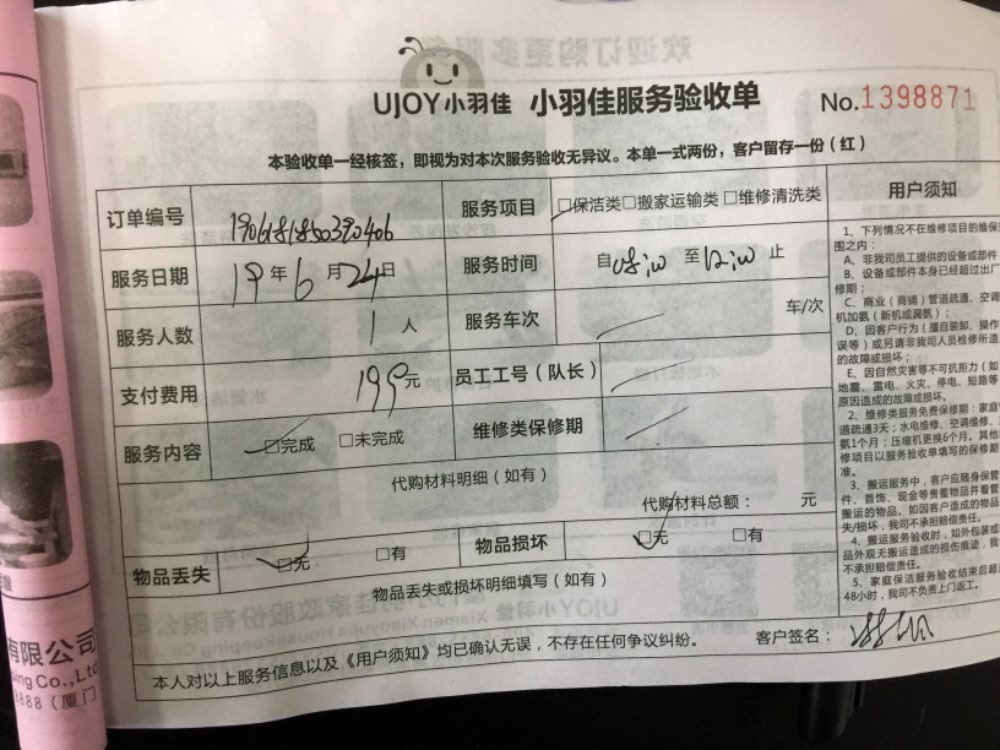 欢迎订购更多服务
UJOY小羽佳 小羽佳服务验收单 No.1398871
本验收单一经核签，即视为对本次服务验收无异议。本单一式两份，客户留存一份（红）
订单编号 服务项目 □保洁类□搬家运输类□维修清洗类
服务日期 19年6月24日 服务时间 自 08:00 至 12:00 止
服务人数 1人 服务车次 车/次
支付费用 199元 员工工号（队长）
服务内容 □完成 □未完成 维修类保修期
代购材料明细（如有）
代购材料总额： 元
物品丢失 □无 □有 物品损坏 □无 □有
物品丢失或损坏明细填写（如有）
本人对以上服务信息以及《用户须知》均已确认无误，不存在任何争议纠纷。 客户签名：
用户须知
1、下列情况不在维修项目的维保
围之内：
A、非我司员工提供的设备或部件
B、设备或部件本身已经超过出厂
修期；
C、商业（商铺）管道疏通、空调
机加氨（新机或漏氨）；
D、因客户行为（擅自装卸、操作
误等）或另请非我司人员检修所造
的故障或损坏；
E、因自然灾害等不可抗拒力（如
地震、雷电、火灾、停电、短路等
原因造成的故障或损坏。
2、维修类服务免费保修期：家庭
道疏通3天；水电维修、空调维修、
氨1个月；压缩机更换6个月。其他
修项目以服务验收单填写的保修期
准。
3、搬运服务中，客户应随身保管
件、首饰、现金等贵重物品并看管
搬运的物品。如因客户造成的物品
失/损坏，我司不承担赔偿责任。
4、搬运服务验收时，如外包装或
品外观无搬运造成的损伤痕迹，我
不承担赔偿责任。
5、家庭保洁服务验收结束后超
48小时，我司不负责上门返工。
有限公司
ping Co.,Ltd
8888（厦门